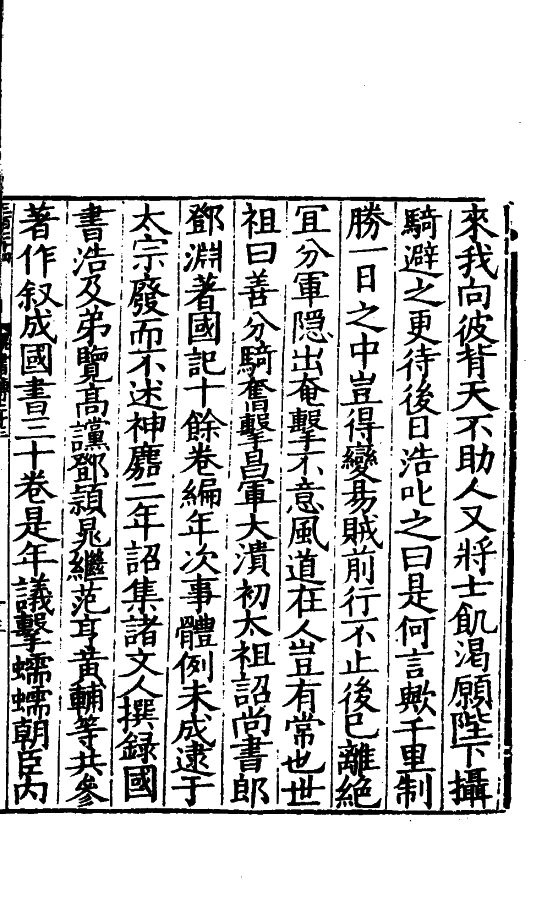 來我向彼背天不助人又將士飢渴願陛下攝
騎避之更待後日浩叱之曰是何言歟千里制
勝一日之中豈得變易賊前行不止後已離絕
宜分軍隱出奄擊不意風道在人豈有常也世
祖曰善分騎奮擊昌軍大潰初太祖詔尚書郎
鄧淵著國記十餘卷編年次事體例未成逮于
太宗廢而不述神䴥二年詔集諸文人撰録國
書浩及弟覽髙讜鄧潁晁繼范亨黃輔等共參
著作叙成國書三十卷是年議擊蠕蠕朝臣內